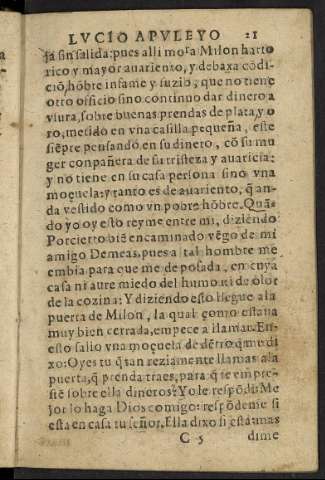 LVCIO APVLEYO 21
ja sin salida: pues alli mora Milon harto
rico y mayor auariento, y de baxa cōdi-
ciō, hōbre infame y suzio, que no tiene
otro officio sino continuo dar dinero a
vsura, sobre buenas prendas de plata, y o
ro, metido en vna casilla pequeña, este
siēpre pensando en su dinero, cō su mu
ger conpañera de su tristeza y auaricia:
y no tiene en su casa persona sino vna
moçuela: y tanto es de auariento, q̄ an-
da vestido como vn pobre hōbre. Quā-
do yo oy esto reyme entre mi, diziēdo
Porcierto biē encaminado vēgo de mi
amigo Demeas, pues a tal hombre me
embia para que me de posada, en cuya
casa ni aure miedo del humo ni de olor
de la cozina: Y diziendo esto llegue a la
puerta de Milon, la qual como estaua
muy bien cerrada, empece a llamar. En-
esto salio vna moçuela de dētro q̄ me di
xo: Oyes tu q̄ tan reziamente llamas a la
puerta, q̄ prenda traes, para q̄ te empre-
stē sobre ella dineros? Yo le respōdi: Me
jor lo haga Dios comigo: respōdeme si
esta en casa tu señor. Ella dixo si esta: mas
C 5 dime